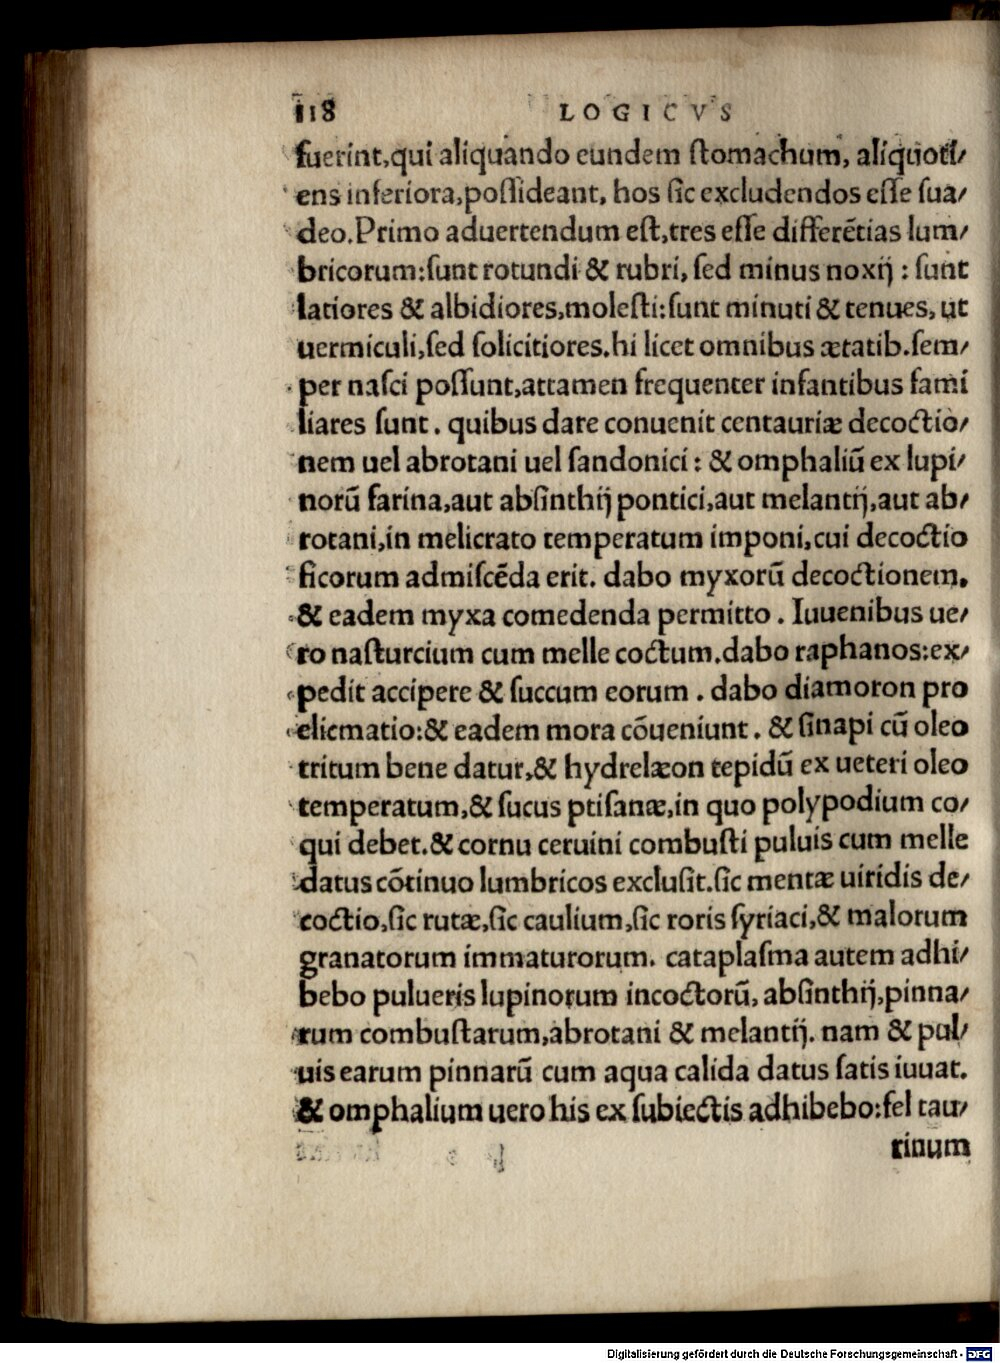 118 LOGICVS
fuerint,qui aliquando eundem ſtomachum, aliquoti⸗
ens inferiora,poſſideant, hos ſic excludendos eſſe ſua⸗
deo.Primo aduertendum eſt,tres eſſe differētias lum⸗
bricorum:ſunt rotundi & rubri, ſed minus noxij : ſunt
latiores & albidiores,moleſti:ſunt minuti & tenues, ut
uermiculi,ſed ſolicitiores.hi licet omnibus ætatib.ſem⸗
per naſci poſſunt,attamen frequenter infantibus fami
liares ſunt . quibus dare conuenit centauriæ decoctio⸗
nem uel abrotani uel ſandonici : & omphaliū ex lupi⸗
norū farina,aut abſinthij pontici,aut melantij,aut ab⸗
rotani,in melicrato temperatum imponi,cui decoctio
ficorum admiſcēda erit. dabo myxorū decoctionem,
& eadem myxa comedenda permitto . Iuuenibus ue⸗
ro naſturcium cum melle coctum.dabo raphanos:ex⸗
pedit accipere & ſuccum eorum . dabo diamoron pro
elicmatio:& eadem mora cōueniunt . & ſinapi cū oleo
tritum bene datur,& hydrelæon tepidū ex ueteri oleo
temperatum,& ſucus ptiſanæ,in quo polypodium co⸗
qui debet.& cornu ceruini combuſti puluis cum melle
datus cōtinuo lumbricos excluſit.ſic mentæ uiridis de⸗
coctio,ſic rutæ,ſic caulium,ſic roris ſyriaci,& malorum
granatorum immaturorum. cataplaſma autem adhi⸗
bebo pulueris lupinorum incoctorū, abſinthij,pinna⸗
rum combuſtarum,abrotani & melantij. nam & pul⸗
uis earum pinnarū cum aqua calida datus ſatis iuuat.
& omphalium uero his ex ſubiectis adhibebo:fel tau⸗
rinum
Digitalisierung gefördert durch die Deutsche Forschungsgemeinschaft - DFG